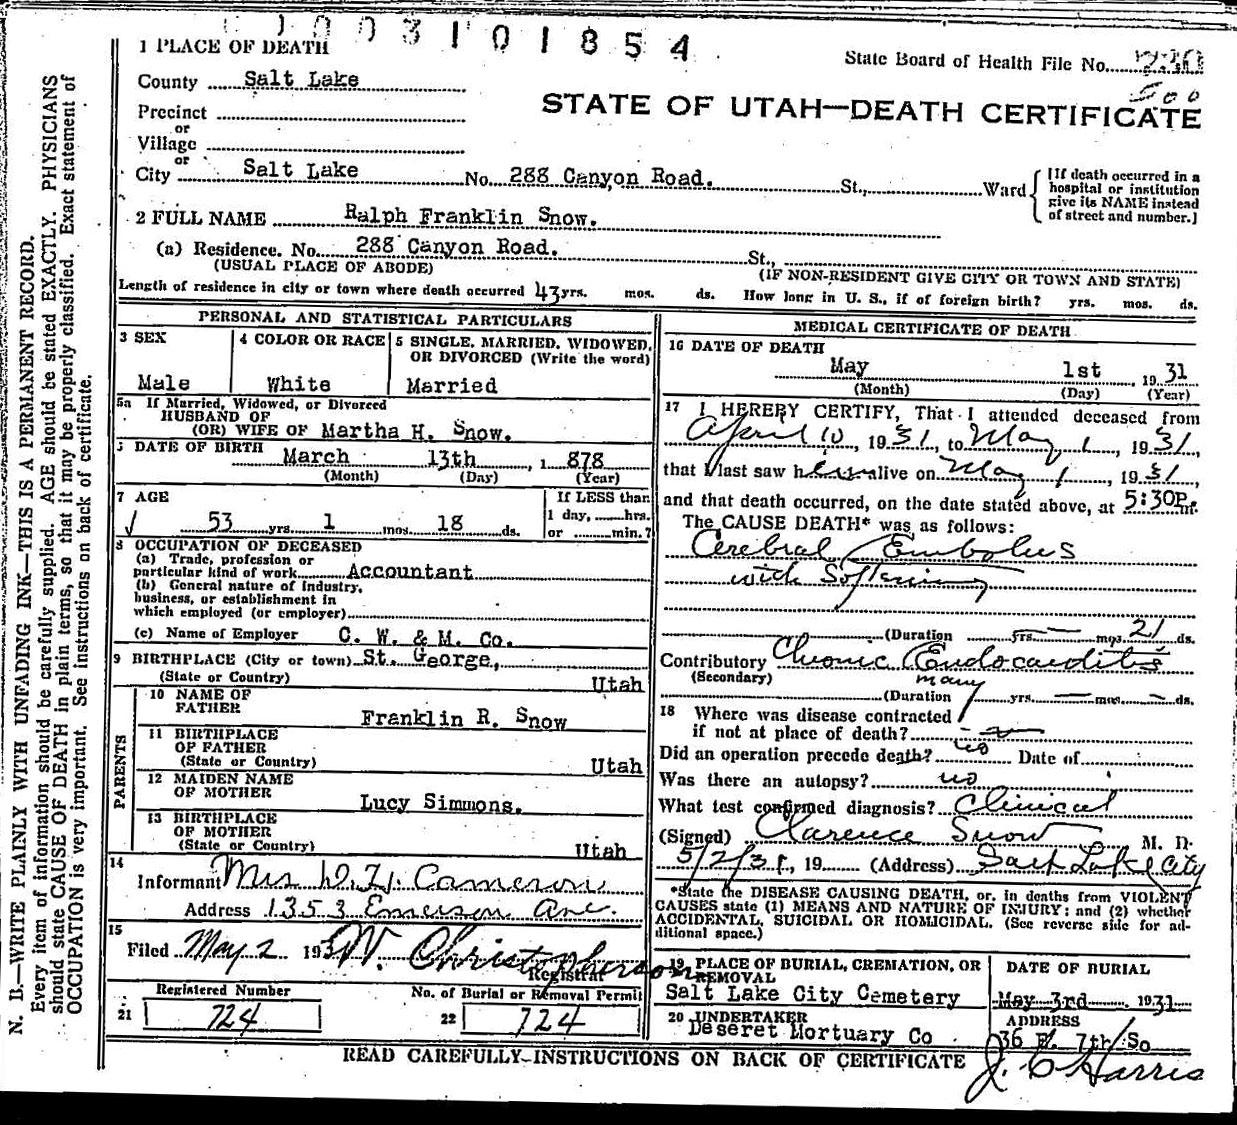 1003101854
1 PLACE OF DEATH
State Board of Health File No. 730
500
County Salt Lake
STATE OF UTAH—DEATH CERTIFICATE
Precinct
or
Village
or
City Salt Lake No. 288 Canyon Road. St., Ward
[If death occurred in a hospital or institution give its NAME instead of street and number.]
2 FULL NAME Ralph Franklin Snow.
(a) Residence. No. 288 Canyon Road. St.,
(USUAL PLACE OF ABODE) (IF NON-RESIDENT GIVE CITY OR TOWN AND STATE)
Length of residence in city or town where death occurred 43 yrs. mos. ds. How long in U. S., if of foreign birth? yrs. mos. ds.
PERSONAL AND STATISTICAL PARTICULARS
3 SEX
Male
4 COLOR OR RACE
White
5 SINGLE, MARRIED, WIDOWED, OR DIVORCED (Write the word)
Married
5a If Married, Widowed, or Divorced
HUSBAND OF
(OR) WIFE OF Martha H. Snow.
DATE OF BIRTH March 13th, 1 878
(Month) (Day) (Year)
7 AGE
53 yrs. 1 mos. 18 ds.
If LESS than
1 day, hrs.
or min.?
8 OCCUPATION OF DECEASED
(a) Trade, profession or
particular kind of work Accountant
(b) General nature of industry,
business, or establishment in
which employed (or employer)
(c) Name of Employer C. W. & M. Co.
9 BIRTHPLACE (City or town) St. George,
(State or Country) Utah
PARENTS
10 NAME OF
FATHER Franklin R. Snow
11 BIRTHPLACE
OF FATHER
(State or Country) Utah
12 MAIDEN NAME
OF MOTHER Lucy Simmons.
13 BIRTHPLACE
OF MOTHER
(State or Country) Utah
14
Informant Mrs W. H. Cameron
Address 1353 Emerson Ave.
15
Filed May 2 1931 W. Christopherson
Registrar
Registered Number
21 724
No. of Burial or Removal Permit
22 724
MEDICAL CERTIFICATE OF DEATH
16 DATE OF DEATH
May 1st, 19 31
(Month) (Day) (Year)
17 I HEREBY CERTIFY, That I attended deceased from
April 10, 1931, to May 1, 1931,
that I last saw him alive on May 1, 1931,
and that death occurred, on the date stated above, at 5:30P.m.
The CAUSE DEATH* was as follows:
Cerebral Embolus
with Softening
(Duration yrs. — mos. 21 ds.
Contributory Chronic Endocarditis
(Secondary) many
(Duration yrs. — mos. — ds.
18 Where was disease contracted
if not at place of death?
Did an operation precede death? no Date of
Was there an autopsy? no
What test confirmed diagnosis? Clinical
(Signed) Clarence Snow M. D.
5/2/31, 19 (Address) Salt Lake City
*State the DISEASE CAUSING DEATH, or, in deaths from VIOLENT
CAUSES state (1) MEANS AND NATURE OF INJURY; and (2) whether
ACCIDENTAL, SUICIDAL OR HOMICIDAL. (See reverse side for ad-
ditional space.)
19 PLACE OF BURIAL, CREMATION, OR
REMOVAL
Salt Lake City Cemetery
DATE OF BURIAL
May 3rd 1931
20 UNDERTAKER
Deseret Mortuary Co
ADDRESS
36 E. 7th So
J. C Harris
READ CAREFULLY INSTRUCTIONS ON BACK OF CERTIFICATE
N. B.—WRITE PLAINLY WITH UNFADING INK—THIS IS A PERMANENT RECORD.
Every item of information should be carefully supplied. AGE should be stated EXACTLY. PHYSICIANS
should state CAUSE OF DEATH in plain terms, so that it may be properly classified. Exact statement of
OCCUPATION is very important. See instructions on back of certificate.